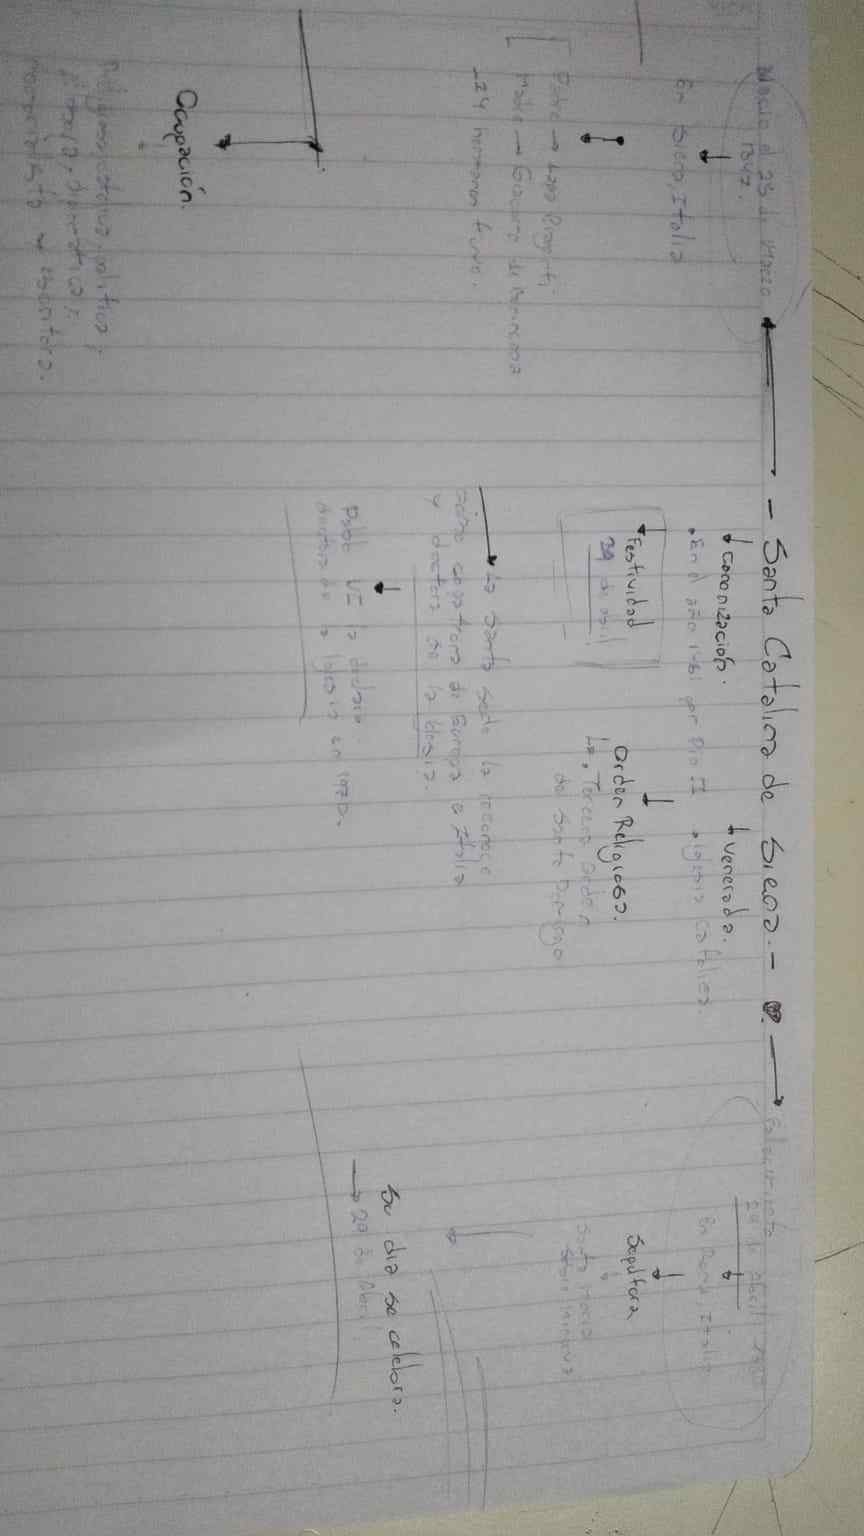 - Santa Catalina de Siena. -
Nacio el 25 de Marzo
1347.
En Siena, Italia
Padre → Lapo
Madre → Giacoma di
- 24 hermanos tuvo.
Ocupación.
Canonización.
En el año 1461 por Pio II
Venerada.
Iglesia catolica.
Festividad
29 de abril
Orden Religiosa.
La Tercera orden
de Santo Domingo
La Santa sede la reconoce
como copatrona de Europa e Italia
y doctora de la Iglesia.
Pablo VI la declaro
doctora de la Iglesia en 1970.
Fallecimiento
29 de abril 1380
En Roma, Italia
Sepultura
Santa Maria
Su dia se celebra.
→ 29 de Abril